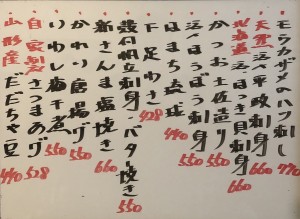 モウカザメのハツ刺し 770
天然活〆平政刺身 660
北海道活〆ほっき貝刺身 660
かつお土佐造り 550
活〆ほうぼう刺身 550
はまち琉球 550
下足わさ 428
殻付帆立刺身・バター焼き 550
新さんま塩焼き 660
かれい唐揚げ 550
いわし梅干煮 550
自家製さつまあげ 528
山形産だだちゃ豆 440